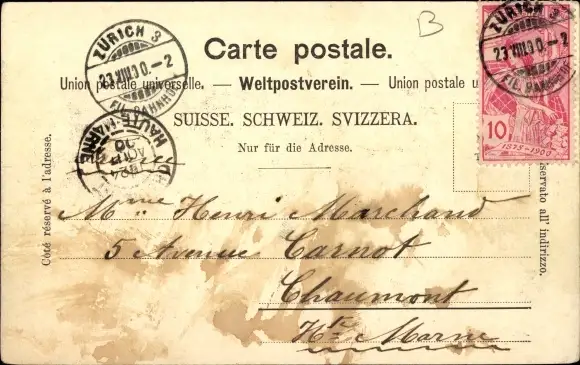 B
ZÜRICH 3
23.VIII.00.–2
FIL. BAHNHOF
ZÜRICH 3
23.VIII.00.–2
FIL. BAHNHOF
10
1875-1900
Carte postale.
Union postale universelle. — Weltpostverein. — Union postale u
SUISSE. SCHWEIZ. SVIZZERA.
Nur für die Adresse.
HAUTE-MARNE
24
AOUT
00
Côté réservé à l'adresse.
riservato all' indirizzo.
Mme Henri Marchand
5 Avenue Carnot
Chaumont
Hte Marne